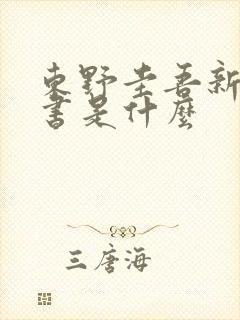 東野圭吾新
書是什麼
三唐海